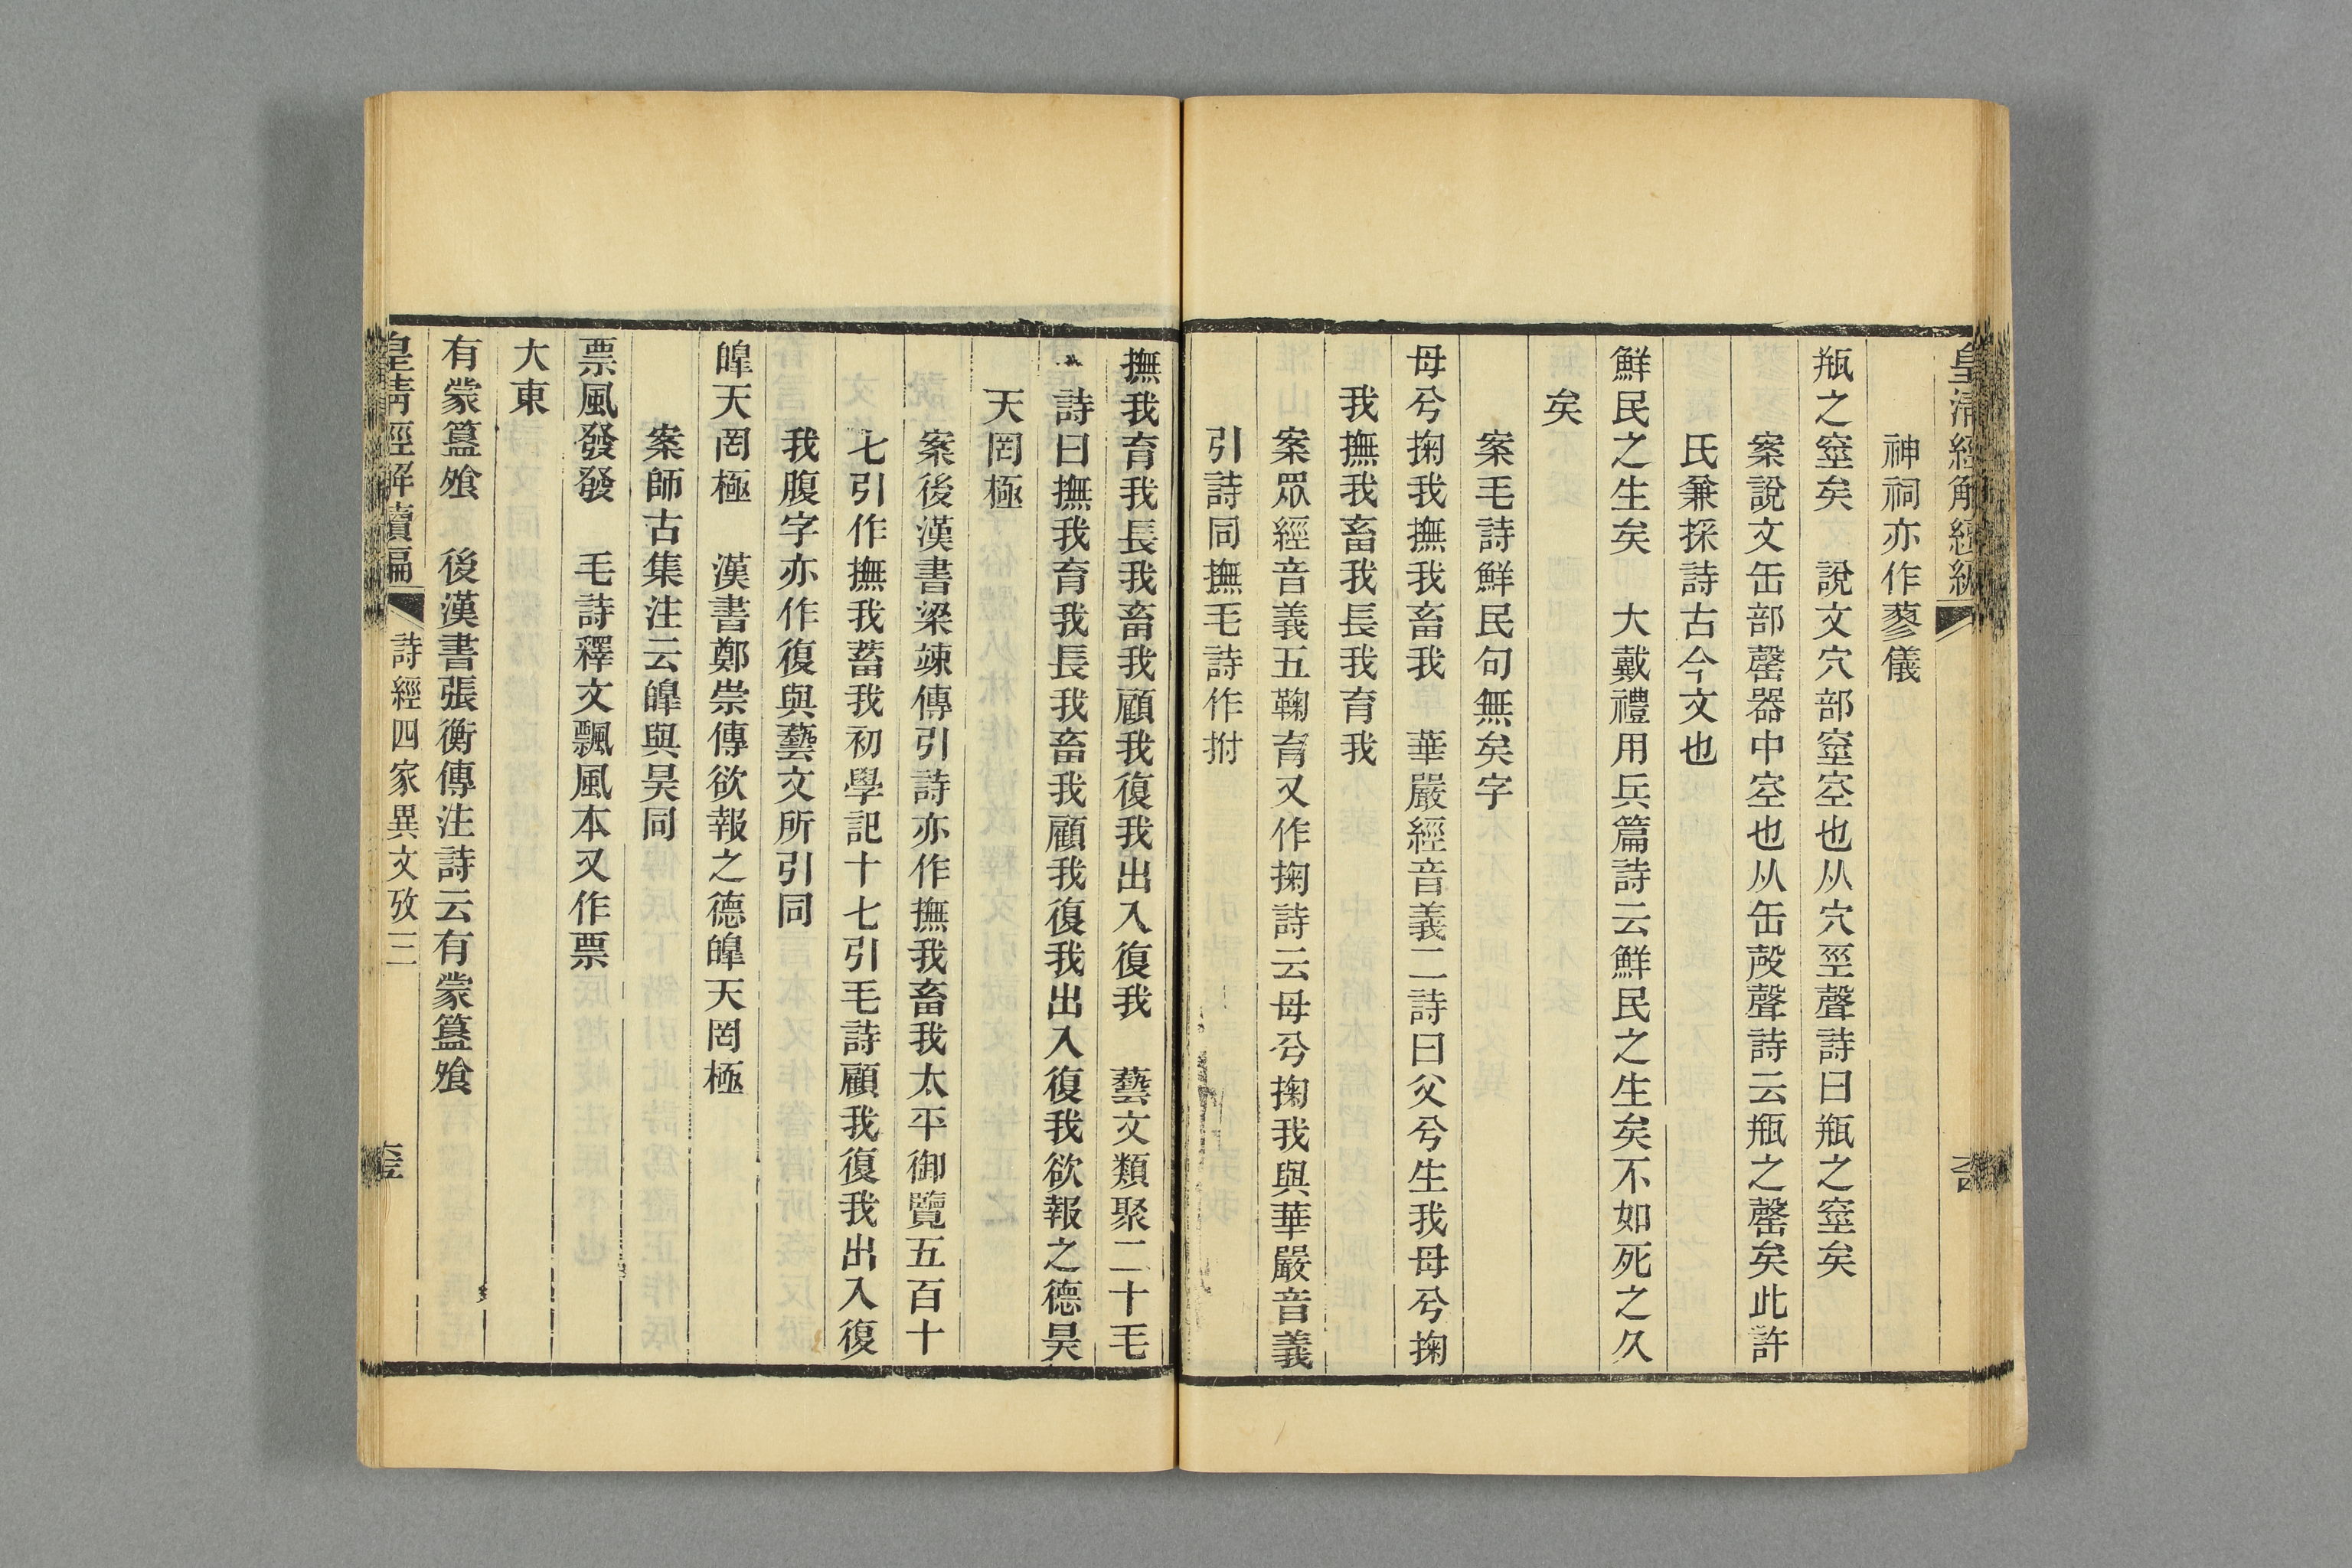 神祠亦作蓼儀
瓶之窒矣　說文穴部窒空也从穴巠聲詩曰瓶之窒矣
案說文缶部罄器中空也从缶殸聲詩云瓶之罄矣此許
氏兼採詩古今文也
鮮民之生矣　大戴禮用兵篇詩云鮮民之生矣不如死之久
矣
案毛詩鮮民句無矣字
母兮掬我撫我畜我　華嚴經音義二詩曰父兮生我母兮掬
我撫我畜我長我育我
案眾經音義五鞠育又作掬詩云母兮掬我與華嚴音義
引詩同撫毛詩作拊
撫我育我長我畜我顧我復我出入復我　藝文類聚二十毛
詩曰撫我育我長我畜我顧我復我出入復我欲報之德昊
天罔極
案後漢書梁竦傳引詩亦作撫我畜我太平御覽五百十
七引作撫我蓄我初學記十七引毛詩顧我復我出入復
我腹字亦作復與藝文所引同
皥天罔極　漢書鄭崇傳欲報之德皥天罔極
案師古集注云皥與昊同
票風發發　毛詩釋文飄風本又作票
大東
有蒙簋飱　後漢書張衡傳注詩云有蒙簋飱
皇清經解續編　詩經四家異文攷三